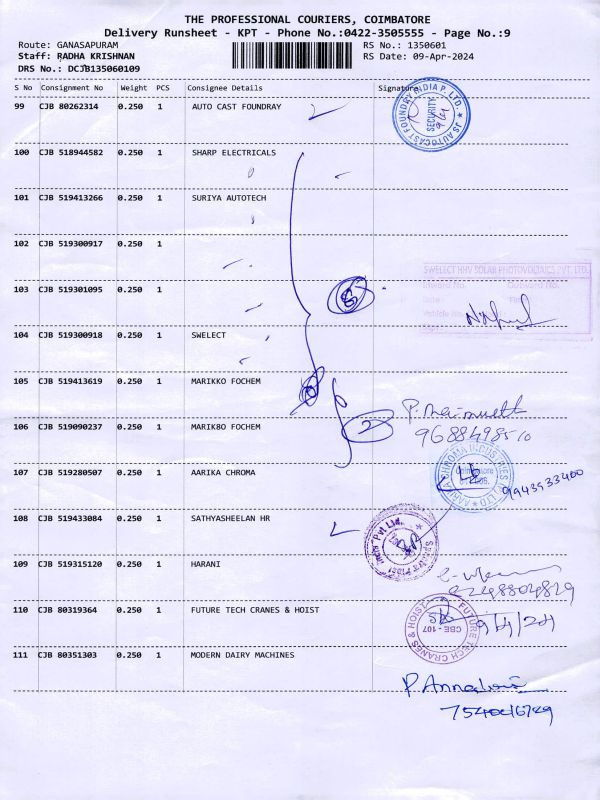 THE PROFESSIONAL COURIERS, COIMBATORE
Delivery Runsheet - KPT - Phone No.:0422-3505555 - Page No.:9
Route: GANASAPURAM RS No.: 1350601
Staff: RADHA KRISHNAN RS Date: 09-Apr-2024
DRS No.: DCJB135060109
S No Consignment No Weight PCS Consignee Details Signature
99 CJB 80262314 0.250 1 AUTO CAST FOUNDRAY
JS AUTOCAST FOUNDRY INDIA P. LTD. SECURITY
100 CJB 518944582 0.250 1 SHARP ELECTRICALS
101 CJB 519413266 0.250 1 SURIYA AUTOTECH
102 CJB 519300917 0.250 1
SWELECT HHV SOLAR PHOTOVOLTAICS PVT. LTD.
103 CJB 519301095 0.250 1
104 CJB 519300918 0.250 1 SWELECT
105 CJB 519413619 0.250 1 MARIKKO FOCHEM
106 CJB 519090237 0.250 1 MARIK8O FOCHEM
2
107 CJB 519280507 0.250 1 AARIKA CHROMA
9943933400
108 CJB 519433084 0.250 1 SATHYASHEELAN HR
109 CJB 519315120 0.250 1 HARANI
110 CJB 80319364 0.250 1 FUTURE TECH CRANES & HOIST
FUTURE TECH CRANES & HOIST CBE - 107
9/4/24
111 CJB 80351303 0.250 1 MODERN DAIRY MACHINES